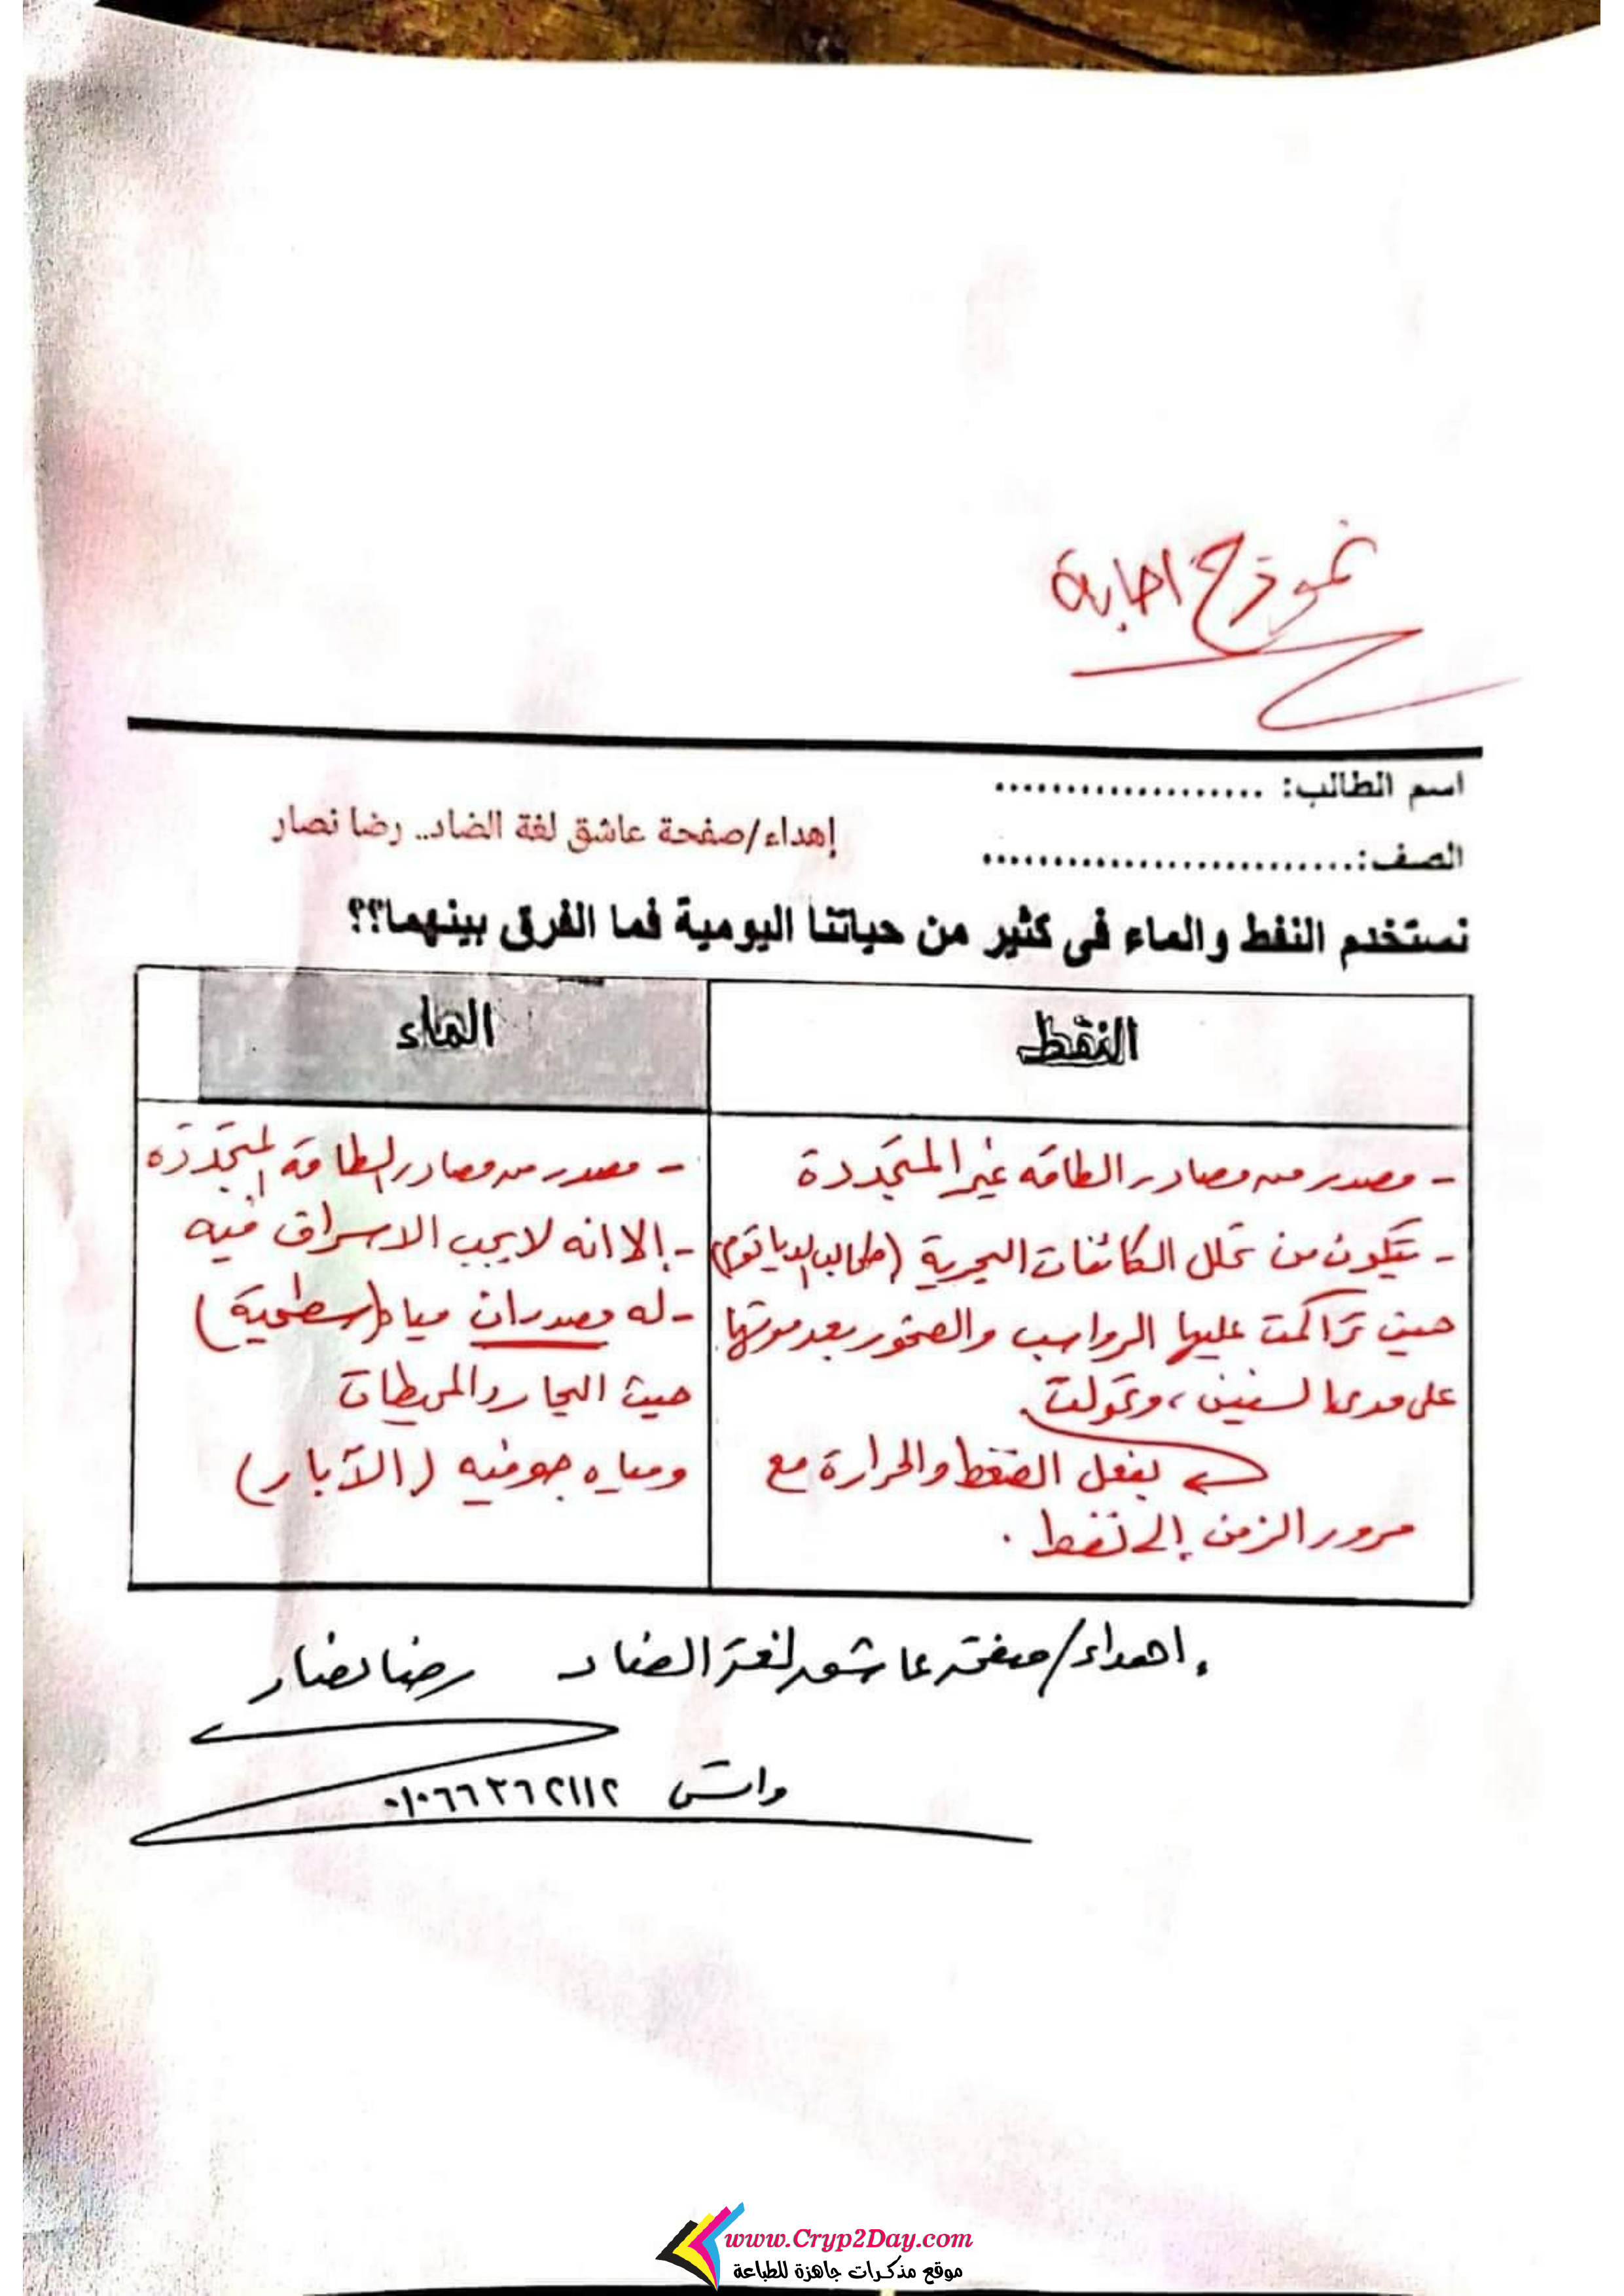 نموذج اجابة
اسم الطالب: ...................
إهداء/صفحة عاشق لغة الضاد.. رضا نصار
الصف:...........................
نستخدم النفط والماء فى كثير من حياتنا اليومية فما الفرق بينهما؟؟
النفط
- مصدر من مصادر الطاقه غير المتجددة
- يتكون من تحلل الكائنات البحرية (طحالب الدياتوم)
حين تراكمت عليها الرواسب والصخور بعد موتها
على مدى السنين، وتحولت
بفعل الضغط والحرارة مع
مرور الزمن إلى نفط .
الماء
- مصدر من مصادر الطاقة المتجدده
- إلا انه لا يجب الاسراف فيه
- له مصدران مياه (سطحية)
حيث البحار والمحيطات
ومياه جوفيه (الآبار)
اهداء/صفحة عاشق لغة الضاد رضا نصار
واتس ٠١٠٦٦٣٦٢١١٢
www.Cryp2Day.com
موقع مذكرات جاهزة للطباعة